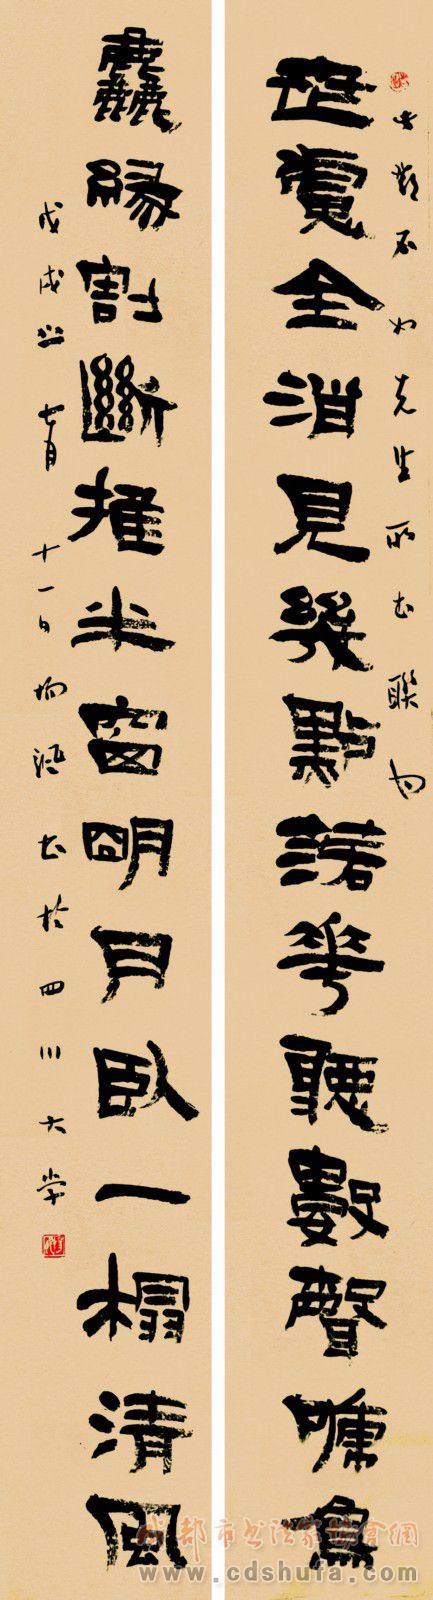 鄧石如先生所書聯句
世慮全消見幾點落花聽數聲啼鳥
塵緣割斷推半窗明月臥一榻清風
戊戌之七月十一日書於四川大學
成都市书法家協會網
www.cdshufa.com